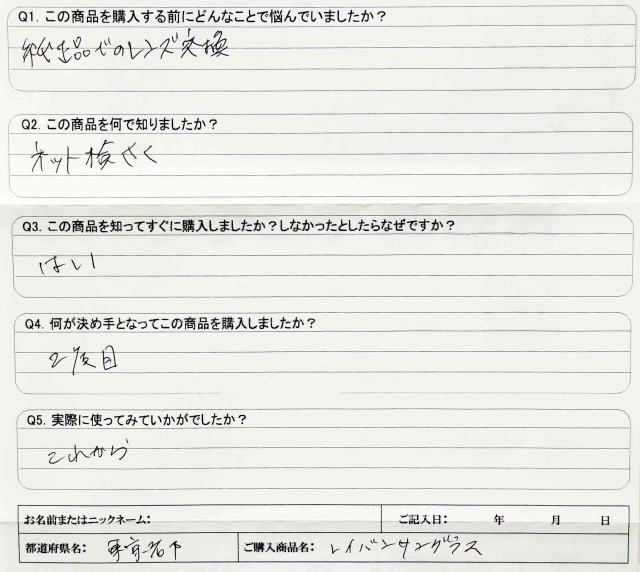 Q1. この商品を購入する前にどんなことで悩んでいましたか？
純正品でのレンズ交換
Q2. この商品を何で知りましたか？
ネット検さく
Q3. この商品を知ってすぐに購入しましたか？しなかったとしたらなぜですか？
はい
Q4. 何が決め手となってこの商品を購入しましたか？
2度目
Q5. 実際に使ってみていかがでしたか？
これから
お名前またはニックネーム： ご記入日： 年 月 日
都道府県名： 東京都 ご購入商品名： レイバンサングラス